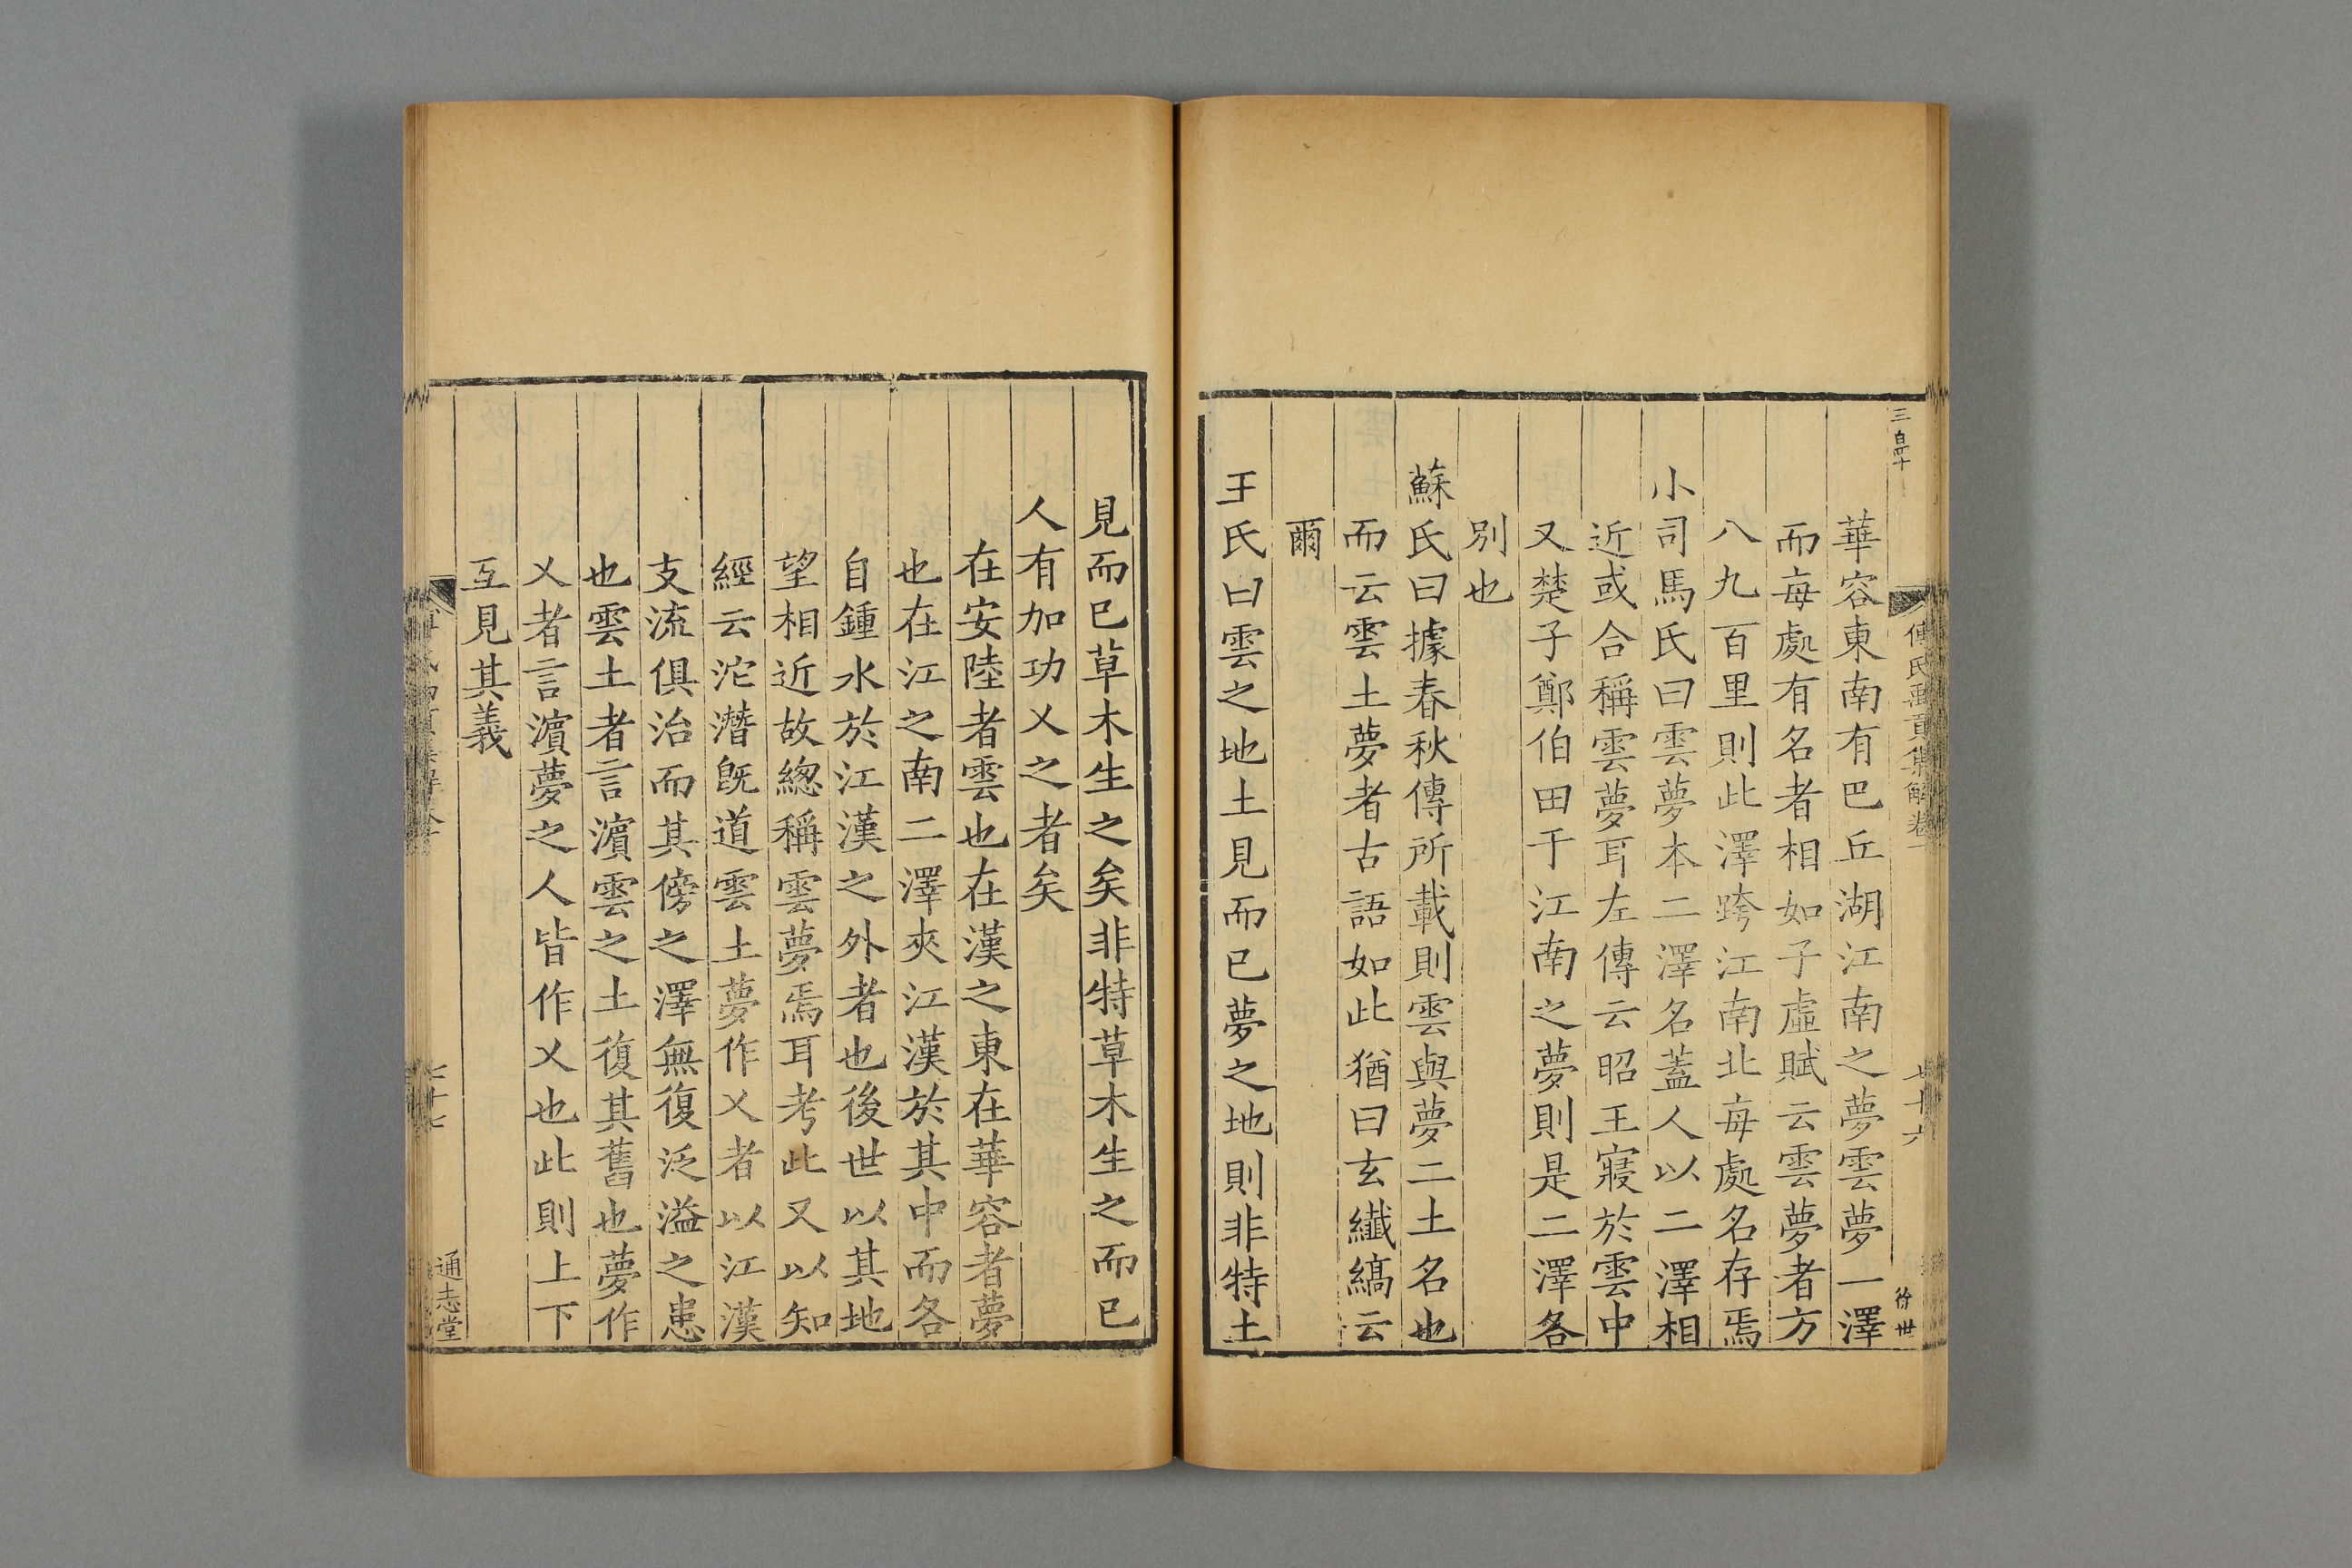 三百四十
傅氏禹貢集解卷一
七十六
徐世
華容東南有巴丘湖江南之夢雲夢一澤
而每處有名者相如子虛賦云雲夢者方
八九百里則此澤跨江南北每處名存焉
小司馬氏曰雲夢本二澤名蓋人以二澤相
近或合稱雲夢耳左傳云昭王寢於雲中
又楚子鄭伯田于江南之夢則是二澤各
別也
蘇氏曰據春秋傳所載則雲與夢二土名也
而云雲土夢者古語如此猶曰玄纖縞云
爾
王氏曰雲之地土見而已夢之地則非特土
見而已草木生之矣非特草木生之而已
人有加功乂之者矣
在安陸者雲也在漢之東在華容者夢
也在江之南二澤夾江漢於其中而各
自鍾水於江漢之外者也後世以其地
望相近故緫稱雲夢焉耳考此又以知
經云沱潛旣道雲土夢作乂者以江漢
支流俱治而其傍之澤無復泛溢之患
也雲土者言濵雲之土復其舊也夢作
乂者言濵夢之人皆作乂也此則上下
互見其義
七十七
通志堂